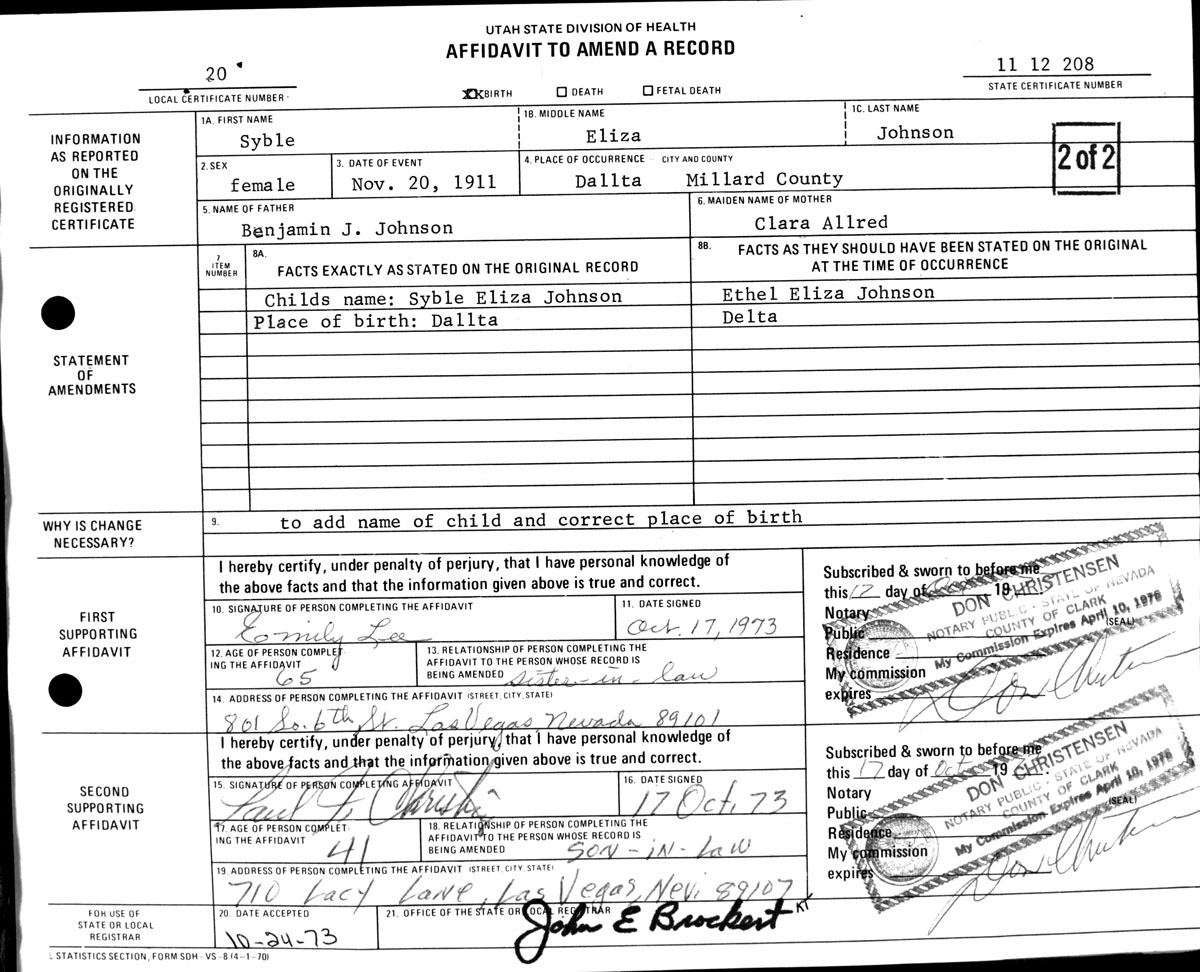 UTAH STATE DIVISION OF HEALTH
AFFIDAVIT TO AMEND A RECORD
20
LOCAL CERTIFICATE NUMBER
XX BIRTH ☐ DEATH ☐ FETAL DEATH
11 12 208
STATE CERTIFICATE NUMBER
INFORMATION
AS REPORTED
ON THE
ORIGINALLY
REGISTERED
CERTIFICATE
1A. FIRST NAME
Syble
1B. MIDDLE NAME
Eliza
1C. LAST NAME
Johnson
2 of 2
2. SEX
female
3. DATE OF EVENT
Nov. 20, 1911
4. PLACE OF OCCURRENCE - CITY AND COUNTY
Dallta Millard County
5. NAME OF FATHER
Benjamin J. Johnson
6. MAIDEN NAME OF MOTHER
Clara Allred
STATEMENT
OF
AMENDMENTS
7
ITEM
NUMBER
8A.
FACTS EXACTLY AS STATED ON THE ORIGINAL RECORD
8B. FACTS AS THEY SHOULD HAVE BEEN STATED ON THE ORIGINAL
AT THE TIME OF OCCURRENCE
Childs name: Syble Eliza Johnson
Ethel Eliza Johnson
Place of birth: Dallta
Delta
WHY IS CHANGE
NECESSARY?
9. to add name of child and correct place of birth
FIRST
SUPPORTING
AFFIDAVIT
I hereby certify, under penalty of perjury, that I have personal knowledge of
the above facts and that the information given above is true and correct.
10. SIGNATURE OF PERSON COMPLETING THE AFFIDAVIT
Emily Lee
11. DATE SIGNED
Oct. 17, 1973
12. AGE OF PERSON COMPLET-
ING THE AFFIDAVIT
65
13. RELATIONSHIP OF PERSON COMPLETING THE
AFFIDAVIT TO THE PERSON WHOSE RECORD IS
BEING AMENDED sister-in-law
14. ADDRESS OF PERSON COMPLETING THE AFFIDAVIT (STREET, CITY, STATE)
801 So. 6th St. Las Vegas, Nevada 89101
Subscribed & sworn to before me
this 17 day of 19
Notary
Public
Residence
My commission
expires
(SEAL)
DON CHRISTENSEN
NOTARY PUBLIC - STATE OF NEVADA
COUNTY OF CLARK
My Commission Expires April 10, 1976
Don Christensen
SECOND
SUPPORTING
AFFIDAVIT
I hereby certify, under penalty of perjury, that I have personal knowledge of
the above facts and that the information given above is true and correct.
15. SIGNATURE OF PERSON COMPLETING AFFIDAVIT
Paul
16. DATE SIGNED
17 Oct, 73
17. AGE OF PERSON COMPLET-
ING THE AFFIDAVIT
41
18. RELATIONSHIP OF PERSON COMPLETING THE
AFFIDAVIT TO THE PERSON WHOSE RECORD IS
BEING AMENDED SON-IN-LAW
19. ADDRESS OF PERSON COMPLETING THE AFFIDAVIT (STREET, CITY, STATE)
710 Lacy Lane, Las Vegas, Nev. 89107
Subscribed & sworn to before me
this 17 day of Oct 19
Notary
Public
Residence
My commission
expires
(SEAL)
DON CHRISTENSEN
NOTARY PUBLIC - STATE OF NEVADA
COUNTY OF CLARK
My Commission Expires April 10, 1976
Don Christensen
FOR USE OF
STATE OR LOCAL
REGISTRAR
20. DATE ACCEPTED
10-24-73
21. OFFICE OF THE STATE OR LOCAL REGISTRAR
John E Brockert KT
L STATISTICS SECTION, FORM SDH - VS - 8 (4-1-70)